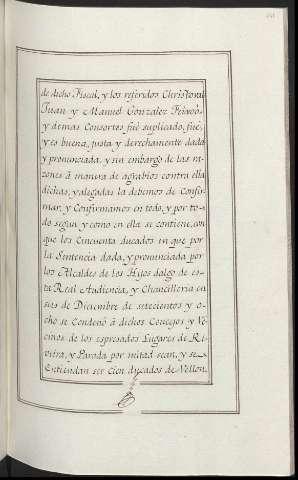 de dicho Fiscal, y los referidos Christoval
Juan y Manuel Gonzalez
y demas Consortes fué suplicado, fue,
y es buena, justa y derechamente dada
y pronunciada, y sin embargo de las ra-
zones á manera de agrabios contra ella
dichas, y alegadas la debemos de Confir-
mar, y Confirmamos en todo, y por to-
do segun y como en ella se contiene, con
que los Cincuenta ducados in que por
la Sentencia dada, y pronunciada por
los Alcaldes de los Hijos dalgo de es-
ta Real Audiencia, y Chancilleria en
seis de Diciembre de setecientos y o-
cho se Condenó á dichos Concejos y Ve-
cinos de los espresados Lugares de Ri-
veira, y Parada por mitad sean, y se
Entiendan ser Cien ducados de Vellon.